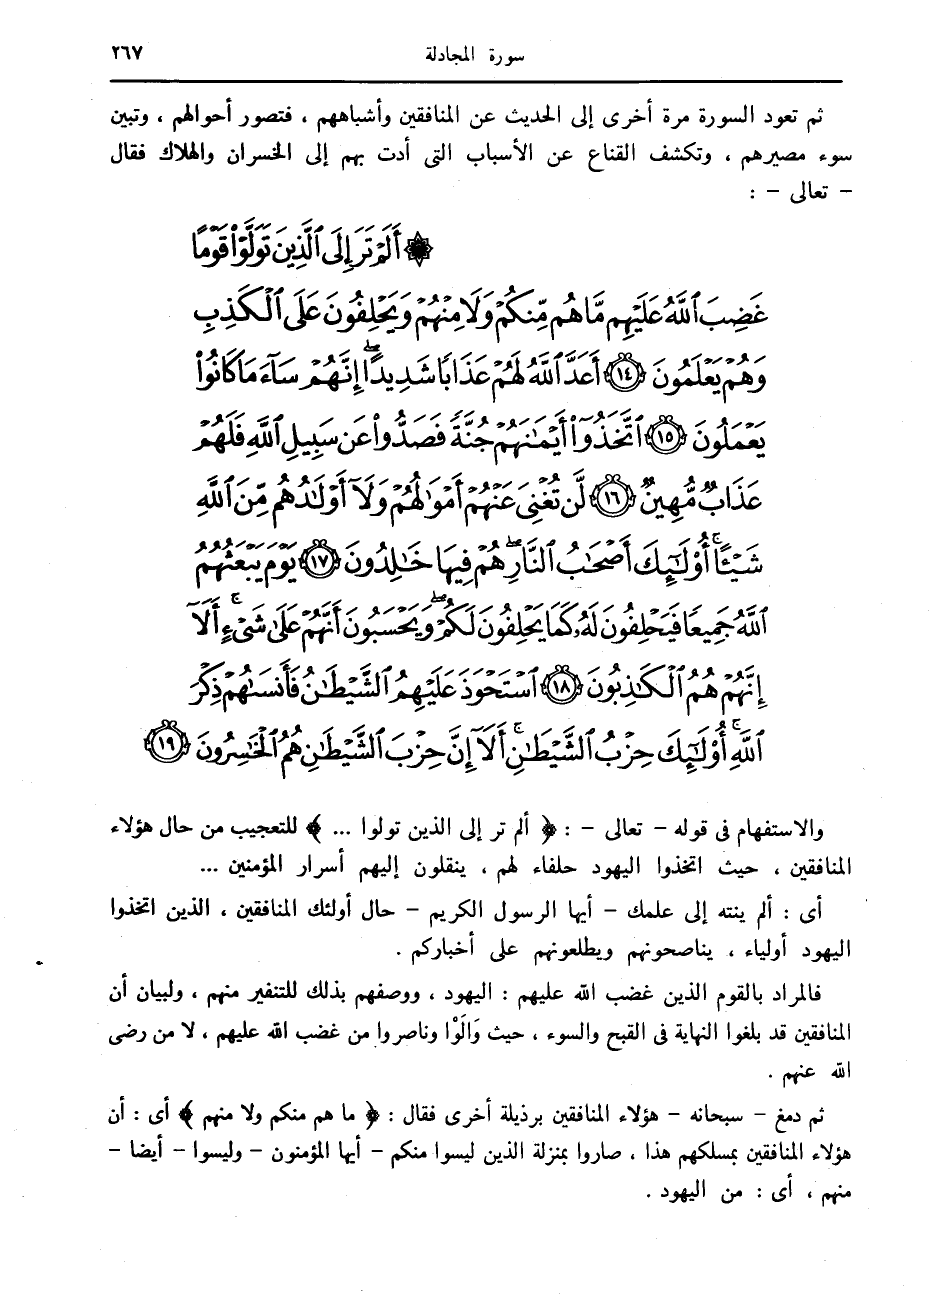 سورة المجادلة ٢٦٧
ثم تعود السورة مرة أخرى إلى الحديث عن المنافقين وأشباههم ، فتصور أحوالهم ، وتبين
سوء مصيرهم ، وتكشف القناع عن الأسباب التى أدت بهم إلى الخسران والهلاك فقال
– تعالى – :
۞ أَلَمْ تَرَ إِلَى ٱلَّذِينَ تَوَلَّوْا۟ قَوْمًا
غَضِبَ ٱللَّهُ عَلَيْهِم مَّا هُم مِّنكُمْ وَلَا مِنْهُمْ وَيَحْلِفُونَ عَلَى ٱلْكَذِبِ
وَهُمْ يَعْلَمُونَ ١٤ أَعَدَّ ٱللَّهُ لَهُمْ عَذَابًا شَدِيدًا ۖ إِنَّهُمْ سَآءَ مَا كَانُوا۟
يَعْمَلُونَ ١٥ ٱتَّخَذُوٓا۟ أَيْمَٰنَهُمْ جُنَّةً فَصَدُّوا۟ عَن سَبِيلِ ٱللَّهِ فَلَهُمْ
عَذَابٌ مُّهِينٌ ١٦ لَّن تُغْنِىَ عَنْهُمْ أَمْوَٰلُهُمْ وَلَآ أَوْلَٰدُهُم مِّنَ ٱللَّهِ
شَيْـًٔا ۚ أُو۟لَٰٓئِكَ أَصْحَٰبُ ٱلنَّارِ ۖ هُمْ فِيهَا خَٰلِدُونَ ١٧ يَوْمَ يَبْعَثُهُمُ
ٱللَّهُ جَمِيعًا فَيَحْلِفُونَ لَهُۥ كَمَا يَحْلِفُونَ لَكُمْ ۖ وَيَحْسَبُونَ أَنَّهُمْ عَلَىٰ شَىْءٍ ۚ أَلَآ
إِنَّهُمْ هُمُ ٱلْكَٰذِبُونَ ١٨ ٱسْتَحْوَذَ عَلَيْهِمُ ٱلشَّيْطَٰنُ فَأَنسَىٰهُمْ ذِكْرَ
ٱللَّهِ ۚ أُو۟لَٰٓئِكَ حِزْبُ ٱلشَّيْطَٰنِ ۚ أَلَآ إِنَّ حِزْبَ ٱلشَّيْطَٰنِ هُمُ ٱلْخَٰسِرُونَ ١٩
والاستفهام فى قوله – تعالى – : ﴿ ألم تر إلى الذين تولوا ... ﴾ للتعجيب من حال هؤلاء
المنافقين ، حيث اتخذوا اليهود حلفاء لهم ، ينقلون إليهم أسرار المؤمنين ...
أى : ألم ينته إلى علمك – أيها الرسول الكريم – حال أولئك المنافقين ، الذين اتخذوا
اليهود أولياء ، يناصحونهم ويطلعونهم على أخباركم .
فالمراد بالقوم الذين غضب الله عليهم : اليهود ، ووصفهم بذلك للتنفير منهم ، ولبيان أن
المنافقين قد بلغوا النهاية فى القبح والسوء ، حيث وَالَوْا وناصروا من غضب الله عليهم ، لا من رضى
الله عنهم .
ثم دمغ – سبحانه – هؤلاء المنافقين برذيلة أخرى فقال : ﴿ ما هم منكم ولا منهم ﴾ أى : أن
هؤلاء المنافقين بمسلكهم هذا ، صاروا بمنزلة الذين ليسوا منكم – أيها المؤمنون – وليسوا – أيضا –
منهم ، أى : من اليهود .